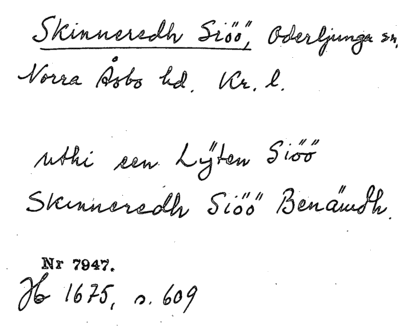 Skinneredh Siöö, Oderljunga sn,
Norra Åsbo hd. Kr. l.
uthi een Lÿten Siöö
Skinneredh Siöö Benämdh.
Nr 7947.
Jb 1675, s. 609